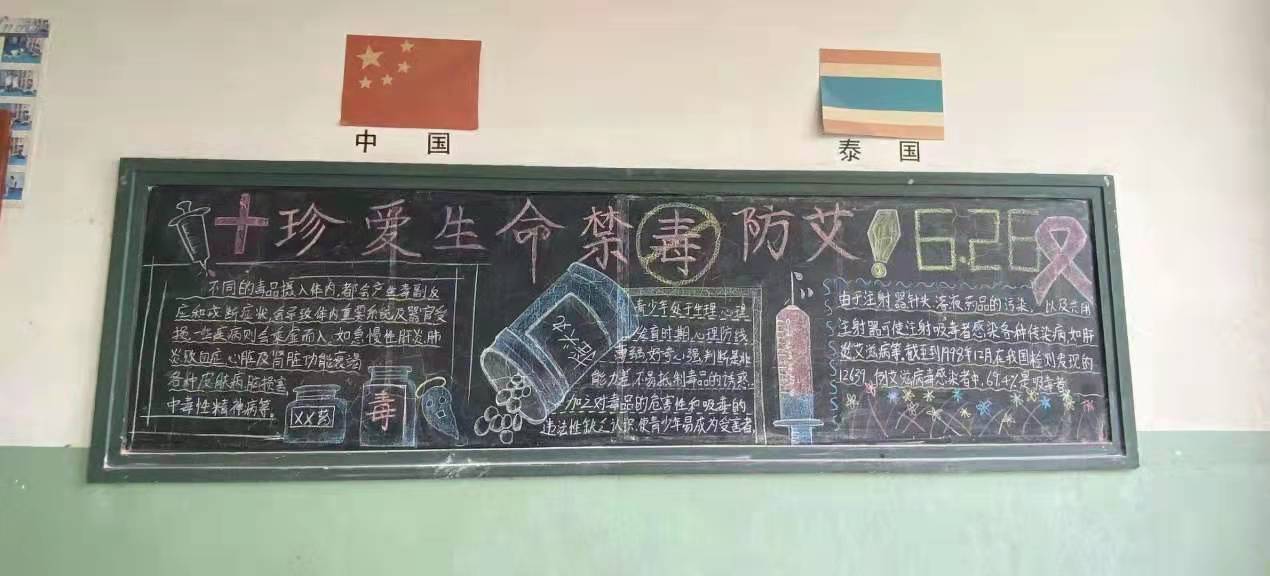 中国
泰国
珍爱生命禁毒防艾 6.26
不同的毒品摄入体内,都会产生毒副反
应和戒断症状,会导致体内重要系统及器官受
损,一些疾病则会乘虚而入,如急慢性肝炎肺
炎败血症,心脏及肾脏功能衰竭
各种皮肤病,脑损害,
中毒性精神病等。
XX药
毒
青少年处于生理、心理
发育时期,心理防线
薄弱,好奇心强,判断是非
能力差,不易抵制毒品的诱惑.
加之对毒品的危害性和吸毒的
违法性缺乏认识,使青少年易成为受害者
由于注射器针头,溶液药品的污染,以及共用
注射器可使注射吸毒者感染各种传染病,如肝
炎艾滋病等,截至到1998年12月在我国检测发现的
12639例艾滋病毒感染者中,69.4%是吸毒者